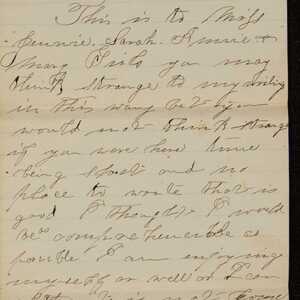 This is to Miss
Sarah. Annie &
Mary Philo you may
think strange to my writing
in this way but if you
would not think strange
if you were here time
being short and no
place to write that is
good I thought I would
be comprehensible as
possible I am enjoying
myself as well as I can